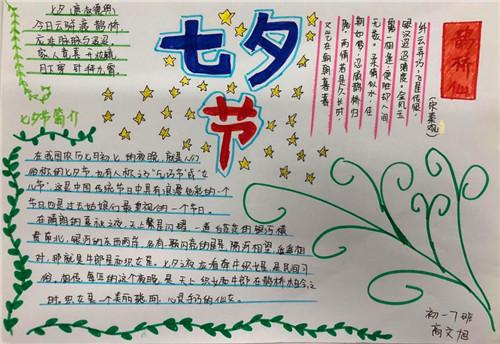 七夕节
七夕(唐 权德舆)
今日云骈渡鹊桥,
应非脉脉与迢迢。
家人竞喜开妆镜,
月下穿针拜九霄。
鹊桥仙
(宋 秦观)
纤云弄巧,飞星传恨,
银汉迢迢暗度。金风玉
露相逢,便胜却人间
无数。柔情似水,佳
期如梦,忍顾鹊桥归
路,两情若是久长时,
又岂在朝朝暮暮
七夕节简介
在我国农历七月初七的夜晚,就是人们
俗称的七夕节,也有人称之为"乞巧节"或"女
儿节",这是中国传统节日中具有浪漫色彩的一个
节日也是过去姑娘们最重视的一个节日。
在晴朗的夏秋之夜,天上繁星闪耀,一道白茫茫的银河横
贯南北,银河的东西两岸,各有一颗闪亮的星星,隔河相望,遥遥相
对,那就是牛郎星和织女星。七夕之夜应看牵牛织女星,是民间习
俗,相传,每年的这个夜晚,是天上织女和牛郎在鹊桥相会之
时。织女是一个美丽聪明、心灵手巧的仙女。
初一7班
高文旭